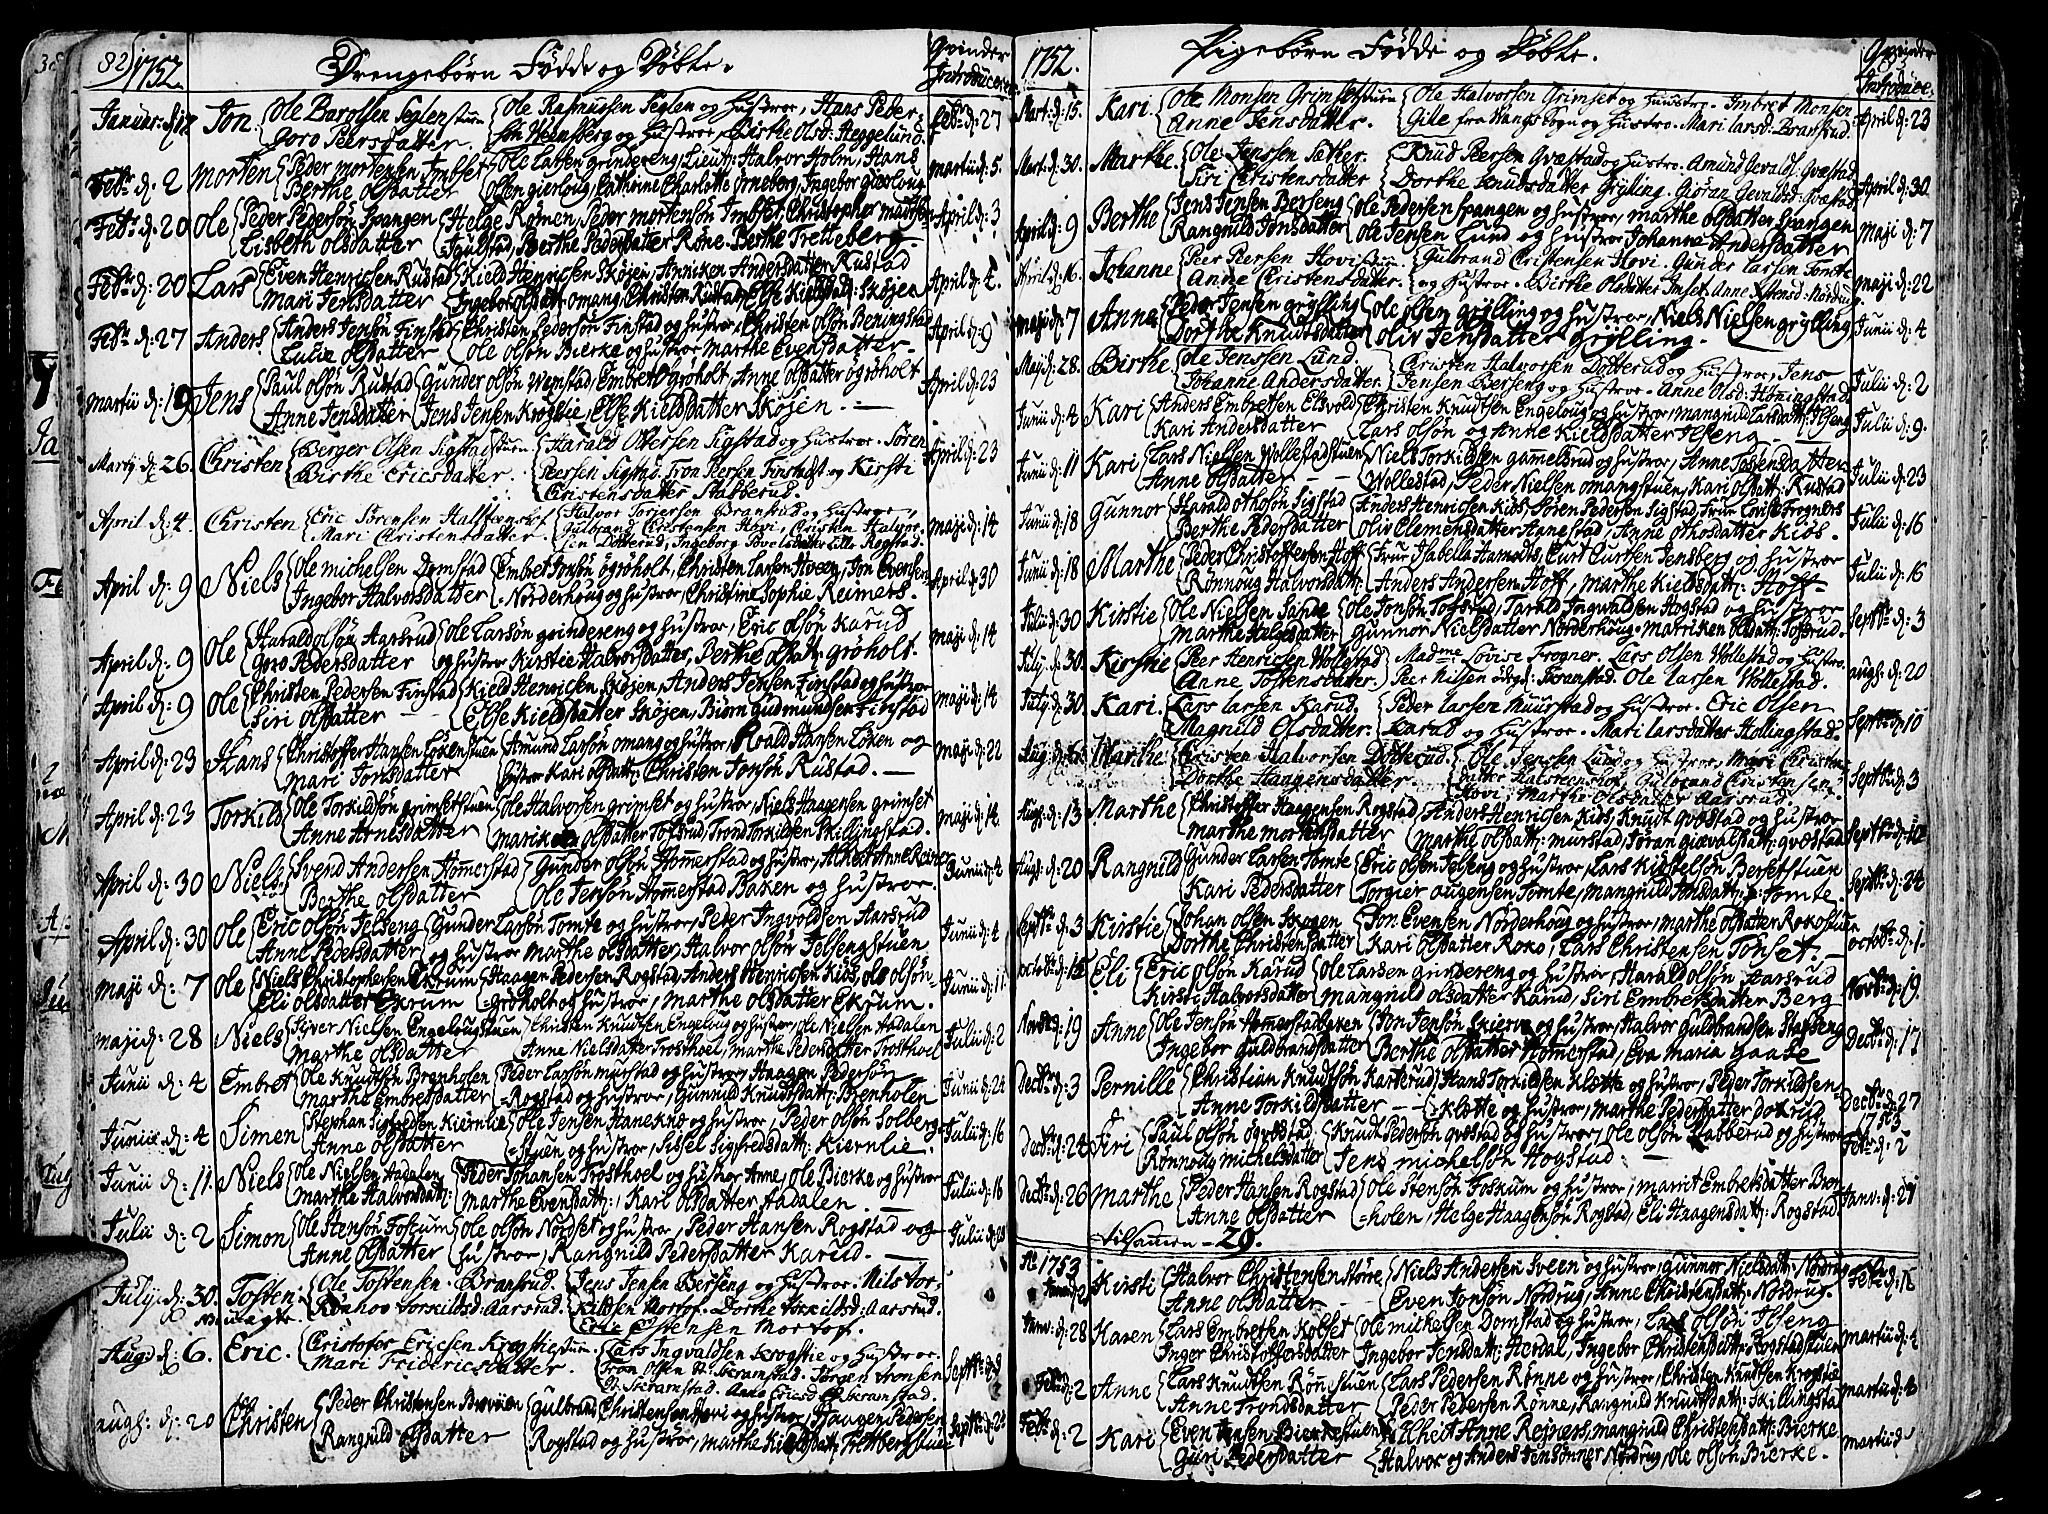 82
1752
Drengebørn Fødde og Døbte.
Qvinder
Introducer
Januar: d: 17
Jon
Ole Larsen Seglen
Goro Peersdatter
Ole Rasmussen Seglen og hustroe, Hans Peder-
og hustroe, Birthe Olsd: Heggelund
Feb: d: 27
Feb: d: 2
Morten
Peder mortensen Imbset
Berthe olsdatter
Ole Larsen grindereng, Lieut: Halvor Holm, Hans
Olsen gierloug, Cathrine Charlotte Örneberg, Ingebor gierloug
martii d: 5.
Feb: d: 20
Ole
Peder Pedersön Spangen
Lisbeth olsdatter
Helge Rönen, Peder mortensön Imbset, Christopher madtsen
Sigulstad, Berthe Pedersdatter Röne, Berthe Tretteberg
April d: 3
Feb: d: 20
Lars
Even Henricsen Rustad
Mari Jensdatter
Kield Henricsen Skøjen, Anniken Andersdatter Rustad
Ingebor olsdatt: omang, Christen Rustad, Else Kieldsdatt: Skøjen
April d: 4.
Feb: d: 27
Anders
Anders Jensön Finstad
Lucie olsdatter
Christen Pedersön Finstad og hustroe, Christen olsön Beningstad
Ole olsön Bierke og hustroe Marthe Evensdatter
April d: 9
martii d: 19
Jens
Paul olsön Rustad
Anne Jensdatter
Gunder olsön Wemstad, Embret ögröholt, Anne olsdatter ögröholt
Jens Jensen Krogstie, Else Kieldsdatter Skøjen. —
April d: 23
Martj d: 26.
Christen
Berger Olsen Sigstadstuen
Birthe Ericsdatter.
Harald Ottersen Sigstad og hustroe. Sören
Peersen Sigstad, Tron Peersen Finstad og Kirsti
Christensdatter Stabberud.
April d: 23
April d: 4.
Christen
Eric Sörensen Halsteenshof
Mari Christensdatter.
Halvor Torjersön Bransrud og hustroe,
Gulbrand Christensen Hovi, Cristen Halvor-
sen Dotterud, Ingeborg Povelsdatter Lille Rogstad.
maji d: 14
April d: 9
Niels
Ole michelsen Domstad
Ingebor Halvorsdatter
Embret Jonsön ögröholt, Christen Larsen Hveen, Jon Evensen
Norderhoug og hustroe, Christine Sophie Reimers.
April d: 30
April d: 9
Ole
Harald olsön Aarsrud
Goro Pedersdatter
Ole Larsön grindereng og hustroe, Eric olsön Karud
og hustroe Kirstie Halvorsdatter, Berthe olsdatt: gröholt.
maji d: 14
April d: 9
Ole
Christen Pedersen Finstad
Siri olsdatter —
Kield Henricsen Skøjen, Anders Jensen Finstad og hustroe
Else Kieldsdatter Skøjen, Biørn Gudmundsen Finstad
maji d: 14
April d: 23
Hans
Christoffer Hansen Lökenstuen
Mari Jonsdatter
Amund Larsön omang og hustroe, Roald Hansen Løken og
hustroe Kari olsdatt: Christen Jonsön Rustad. —
maji d: 22
April d: 23
Torkild
Ole Torkildsön grimsetstuen
Anne Arnesdatter
Ole Halvorsen grimset og hustroe, Niels Haagensen grimset
Mariken olsdatter Tofsrud, Trond Torkildsen Skillingstad.
maji d: 14
April d: 30
Niels
Svend Andersen Hommerstad
Berthe olsdatter
Gunder olsön Hommerstad og hustroe, Alheit Anne Reiner
Ole Jensön Hommerstad Baken og hustroe.
Junii d: 4
April d: 30
Ole
Eric olsön Jelseng
Anne Pedersdatter
Gunder Larsön Tomte og hustroe, Peder Ingvoldsen Aarsrud
og hustroe Marthe olsdatter, Halvor olsön Jelsengstuen
Junii d: 4
maji d: 7
Ole
Niels Christophersen Ekrum
Eli olsdatter Ekrum
Haagen Pedersen Rogstad, Anders Henricsen Kiös, ole olsön
gröholt og hustroe, Marthe olsdatter Ekrum.
Junii d: 11
maji d: 28
Niels
Siver Nielsen Engelougstuen
Marthe olsdatter
Christen Knudtsen Engeloug og hustroe, ole Nielsen Aadalen
Anne Nielsdatter Trosthoel, marthe Pedersdatter Trosthoel
Julii d: 2
Junii d: 4
Embret
Ole Knudtsön Brenholen
Marthe Embretsdatter
Peder Larsön murstad og hustroe, Haagen Pedersön
Rogstad og hustroe, Gunnild Knudtsdatt: Brenholen
Junii d: 24
Junii d: 4
Simen
Stephan Sigfredsen Kiernlie
Anne olsdatter
Ole Jensen Haneknæ og hustroe, Peder olsön Solberg-
Stuen og hustroe, Sissel Sigfredsdatt: Kiernlie.
Julii d: 16
Junii d: 11.
Niels
Ole Nielsen Aadalen
Marthe Halvorsdatt:
Peder Johansen Trosthoel og hustroe Anne, ole Bierke og hustroe
Marthe Evensdatt:, Kari olsdatter Aadalen. —
Julii d: 16
Julii d: 2
Simon
Ole Stensön Foskum
Anne olsdatter
Ole olsön Nordset og hustroe, Peder Hansen Rogstad og
hustroe, Rangnild Pedersdatter Karud. —
Julii d: 23
Julij d: 30.
Tosten
Ole Tostensen Bransrud.
Rönnov Torkildsd: Aarsrud.
Jens Jensen Berseng og hustroe. Nils Tor-
kildsen Mortop. Dorthe Torkildsd: Aarsrud.
Eric Estensen Mortop.
Aug: d: 6.
Eric.
Cristofer Ericsen Krogstiestuen
Mari Fridericsdatter.
Lars Ingvaldsen Krogstie og hustroe.
Tron Olsen N: Skramstad. Jörgen Tronsen
N: Skramstad. Anne Ericsd: Skramstad.
Septbr d: 3
augs: d: 20
Christen
Peder Christensen Brovoien
Rangnild olsdatter
Gulbrand Christensen Hovi og hustroe, Haagen Pedersen
Rogstad og hustroe, Marthe Kieldsdatt: Tretbergstuen
Septbr d: 24
1752.
Pigebørn Fødde og Døbte.
Qvinder
Introduce.
Mart: d: 15.
Kari
Ole Monsen Grimsetstuen
Anne Jensdatter.
Ole Halvorsen Grimset og hustroe. Imbret Monsen
Gile fra Vangs sogn og hustroe. Mari Larsd: Bransrud.
April d: 23
Mart: d: 30.
Marthe
Ole Jenssen Sæther.
Siri Christensdatter
Knud Peersen Qvæstad og hustroe. Amund Gevalds: Qvæstad
Dorthe Knudsdatter Grylling. Gjöran Gevaldsd: Qvæstad.
April d: 30.
April d: 9
Berthe
Jens Jensen Berseng
Rangnild Jonsdatter
Ole Pedersen Spangen og hustroe, marthe olsdatter Spangen
Ole Jensen Lund og hustroe Johanna Andersdatter
Maji d: 7
April d: 16.
Johanne
Peer Peersen Hovistuen
Anne Christensdatter.
Gulbrand Cristensen Hovi. Gunder Larsen Tomte
og hustroe. Birthe Olsdatter Imset. Anne Estensd: Nordrug.
maji d: 22
maji d: 7
Anne
Peder Jensen grylling
Dorthe Knudtsdatter
Ole olsen grylling og hustroe, Niels Nielsen grylling
Oliv Jensdatter grylling.
Junii d: 4
Maj d: 28.
Birthe
Ole Jenssen Lund.
Johanne Andersdatter.
Cristen Halvorsen Dotterud og hustroe, Jens
Jensen Berseng og hustroe. Anne Olsd: Höningstad.
Julii d: 2
Junii d: 4
Kari
Anders Embretsen Elsvold
Kari Andersdatter
Christen Knudtsen Engeloug og hustroe, mangnild Larsdatt: Ilseng
Lars olsön og Anne Kieldsdatter Ilseng
Julii d: 9.
Junii d: 11
Kari
Lars Nielsen Wollestadstuen
Anne olsdatter — —
Niels Torkildsen gammelsrud og hustroe, Anne Tostensdatter
Wollestad, Peder Nielsen omangstuen, Kari olsdatt: Rustad
Julii d: 23
Junii d: 18
Gunnor
Harald othosön Sigstad
Berthe Pedersdatter
Anders Henricsen Kiös, Sören Pedersen Sigstad, Frue Lovise Frogners
Oliv Clemensdatter Aanestad, Anne othosdatter Kiös.
Julii d: 16
Junii d: 18
Marthe
Peder Christoffersen Hoff
Rönnoug Halvorsdatt:
Frue Isabella Aamodts, Curt Curtsen Jensberg og hustroe
Anders Andersen Hoff, Marthe Kieldsdatt: Hoff
Julii d: 16
Julii d: 30
Kirstie
Ole Nielsen Sande
Marthe Helgesdatter
Ole Jonsön Tofsrud, Tarald Ingwaldsen Hogstad og hustroe
Gunnor Nielsdatter Norderhoug, Mariken olsdatt: Tofsrud.
Septbr: d: 3
Julij d: 30.
Kirstie
Peer Henricsen Wollestad
Anne Tostensdatter.
Madme Lovise Frogner. Lars Olsen Wollestad og hustroe.
Peer Nilsen ödegd: Skramstad. Ole Larsen Wollestad.
augs: d: 20
July d: 30.
Kari.
Lars Larsen Karud.
Magnild Olsdatter.
Peder Larsen Muurstad og hustroe. Eric Olsen
Karud og hustroe. Mari Larsdatter Hollingstad.
Septbr d: 10
Aug: d: 6.
Marthe
Cristen Halvorsen Dotterud.
Dorthe Haagensdatter.
Ole Jensen Lund og hustroe, Mari Christens-
datter Halsteenshof, Gulbrand Christensen
Hovi. Marthe Olsdatter Aarsrud.
Septbr: d: 3
Augs: d: 13
Marthe
Christoffer Haagensen Rogstad
Marthe Mortensdatter
Anders Henricsen Kiös, Knudt qvæstad og hustroe
Marthe olsdatt: murstad, Göran giævalsdatt: qvæstad
Septbr: d: 10
Augs: d: 20
Rangnild
Gunder Larsen Tomte
Kari Pedersdatter
Eric olsen Jelseng og hustroe, Lars Kieldsön Bersetstuen
Torgier Augensen Tomte, Mangnild Jensdatt: Tomte.
Septbr: d: 24
Septbr: d: 3
Kirstie
Johan olsen Skogen
Dorthe Christensdatter
Jon Evensen Norderhoug og hustroe, Marthe olsdatter Rokostuen
Kari olsdatter Roko, Lars Christensen Tonset. —
octobr: d: 1.
octobr: d: 15
Eli
Eric olsön Karud
Kirsti Halvorsdatter
Ole Larsen grindereng og hustroe, Harald olsön Aarsrud
Mangnild olsdatter Karud, Siri Embretsdatter Berg
Novbr: d: 19.
Novbr d: 19
Anne
Ole Jensön Hommerstadbaken
Ingebor Guldbrandsdatter
Jon Jensön Skierve og hustroe, Halvor Guldbrandsen Stafseng
Berthe olsdatter Hommerstad, Eva Maria Gaase
Decbr: d: 17
Decbr: d: 3
Pernille
Christian Knudtsön Karterud
Anne Torkildsdatter —
Hans Torkildsen Klotte og hustroe, Peder Torkildsen
Klotte og hustroe, Marthe Pedersdatter Dokrud
Decbr: d: 27
Decbr: d: 24
Siri
Paul olsön ögvæstad
Rönnoug Michelsdatter
Knudt Pedersön qvæstad og hustroe, ole olsön Stabberud og hustroe
Jens Michelsön Hogstad —
1753
Febr: d: 2
Decbr: d: 26
Marthe
Peder Hansen Rogstad
Anne olsdatter
Ole Stensön Foskum og hustroe, Marrit Embretsdatter Bren-
holen, Helge Haagensön Rogstad, Eli Haagensdatt: Rogstad
Janv: d: 21
tilsamen = 29.
Ao 1753
Kirsti
Halvor Christensen Støre
Anne olsdatter
Niels Andersen Sveen og hustroe, Gunnor Nielsdatt: Nordrug
Even Jonsön Nordrug, Anne Christensdatt: Nordrug.
Janv: d: 28
Karen
Lars Embretsen Kolset
Inger Christoffersdatter
Ole Mickelsen Domstad og hustroe, Lars olsön Ilseng
Ingebor Jensdatt: Herdal, Ingebor Christensdatt: Rogstadstuen
Martii d: 4
Feb: d: 2
Anne
Lars Knudtsen Rönnstuen
Anne Trondsdatter
Lars Pedersen Rönne og hustroe, Christen Knudtsen Krogstie
Peder Pedersen Rönne, Rangnild Knudtsdatt: Skillingstad
Martii d: 4
Febr: d: 2
Kari
Even Jensen Bierkestuen
Guri Pedersdatter
Alheit Anne Rejners, Mangnild Christensdatt: Bierke
Halvor og Anders Jensönner Nordrug, ole olsön Bierke.
Martii d: